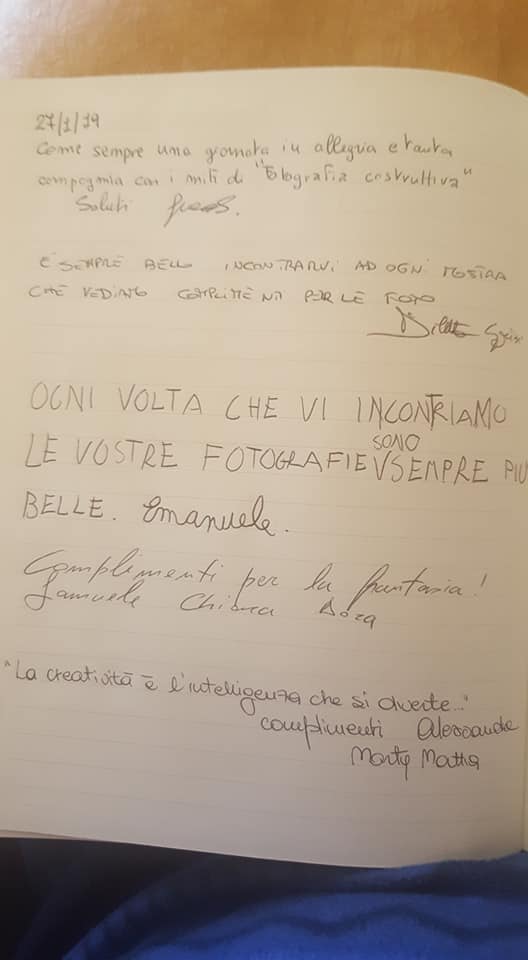 27/1/19
Come sempre una giornata in allegria e tanta
compagnia con i miti di "Fotografia costruttiva"
Saluti
E' SEMPRE BELLO INCONTRARVI AD OGNI MOSTRA
CHE VEDIAMO COMPLIMENTI PER LE FOTO
OGNI VOLTA CHE VI INCONTRIAMO
SONO
LE VOSTRE FOTOGRAFIE V SEMPRE PIU
BELLE. Emanuele.
Complimenti per la fantasia!
Samuele Chiara
"La creatività è l'intelligenza che si diverte..."
complimenti Alessandra
Marty Mattia